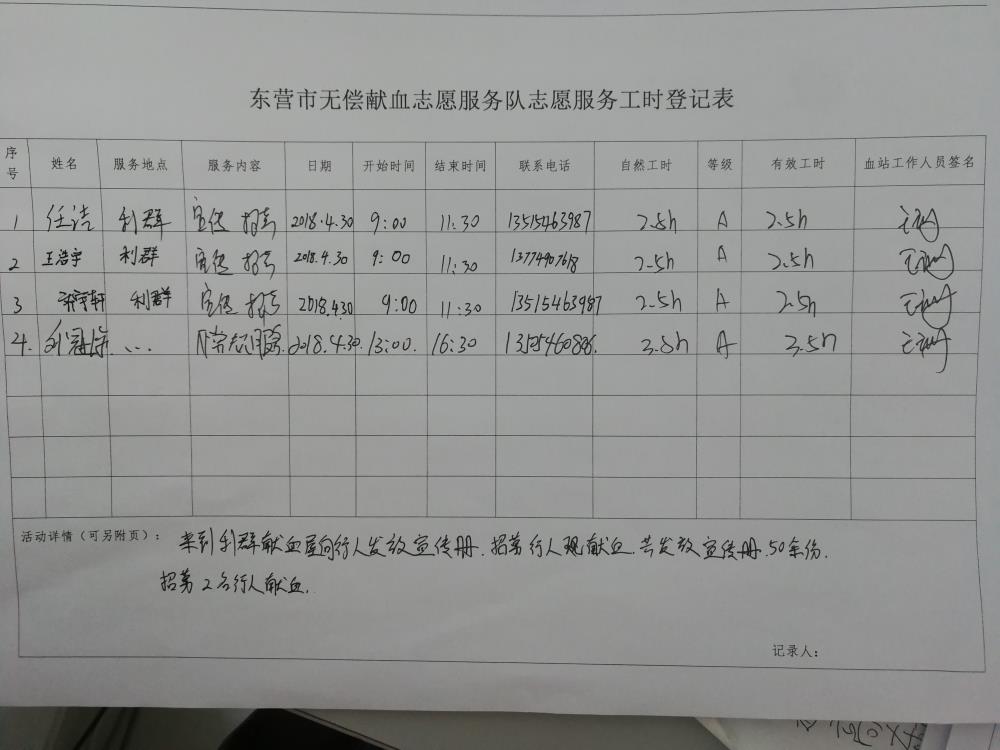 东营市无偿献血志愿服务队志愿服务工时登记表
序号 姓名 服务地点 服务内容 日期 开始时间 结束时间 联系电话 自然工时 等级 有效工时 血站工作人员签名
1 任洁 利群 宣传 招募 2018.4.30 9:00 11:30 13515463987 2.5h A 2.5h
2 王浩宇 利群 宣传 招募 2018.4.30 9:00 11:30 13774907618 2.5h A 2.5h
3 利群 宣传 招募 2018.4.30 9:00 11:30 13515463987 2.5h A 2.5h
4. ... 2018.4.30. 13:00. 16:30 3.5h A 3.5h
活动详情（可另附页）： 来到利群献血屋向行人发放宣传册.招募行人献血.共发放宣传册.50余份.
招募2名行人献血.
记录人：